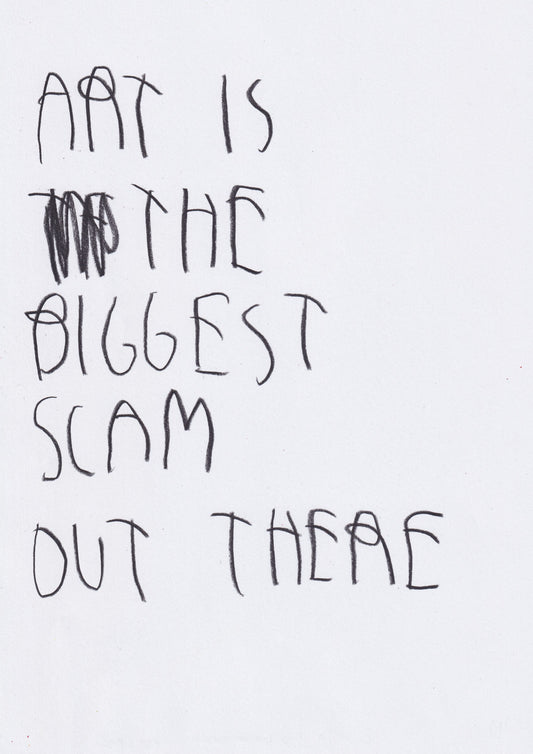 ART IS
THE
BIGGEST
SCAM
OUT THERE